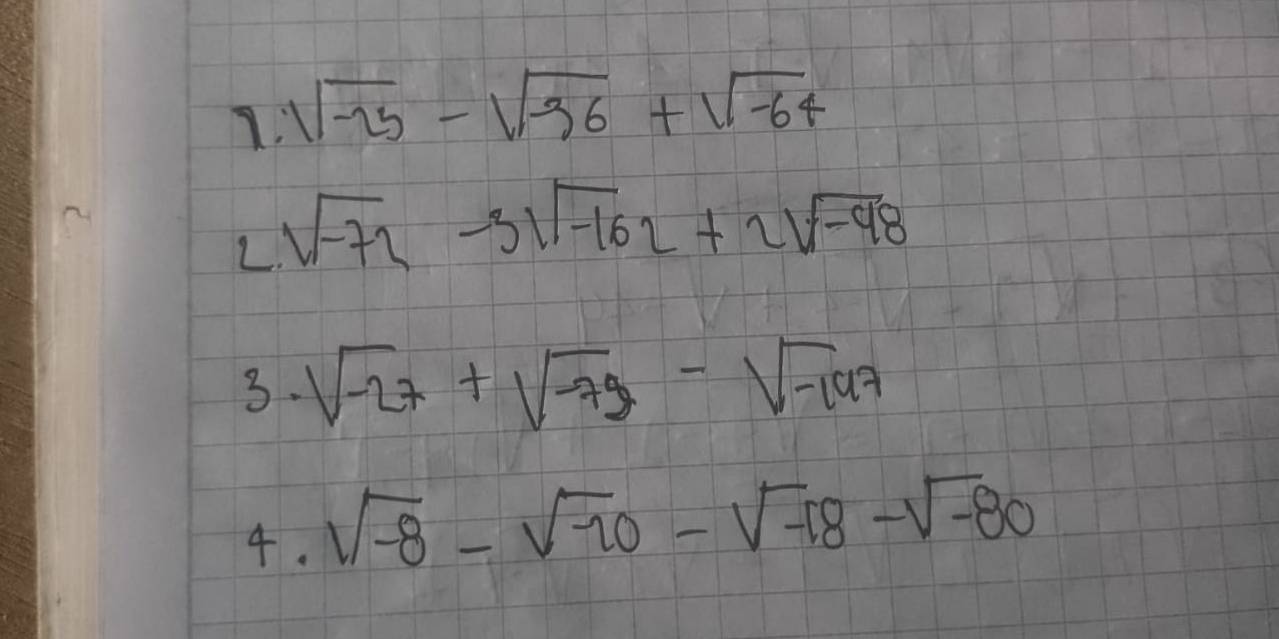 1. √-25 - √-36 + √-64
2. √-72 -3√-162 + 2√-98
3. √-27 + √-75 - √-147
4. √-8 - √-20 - √-18 - √-80